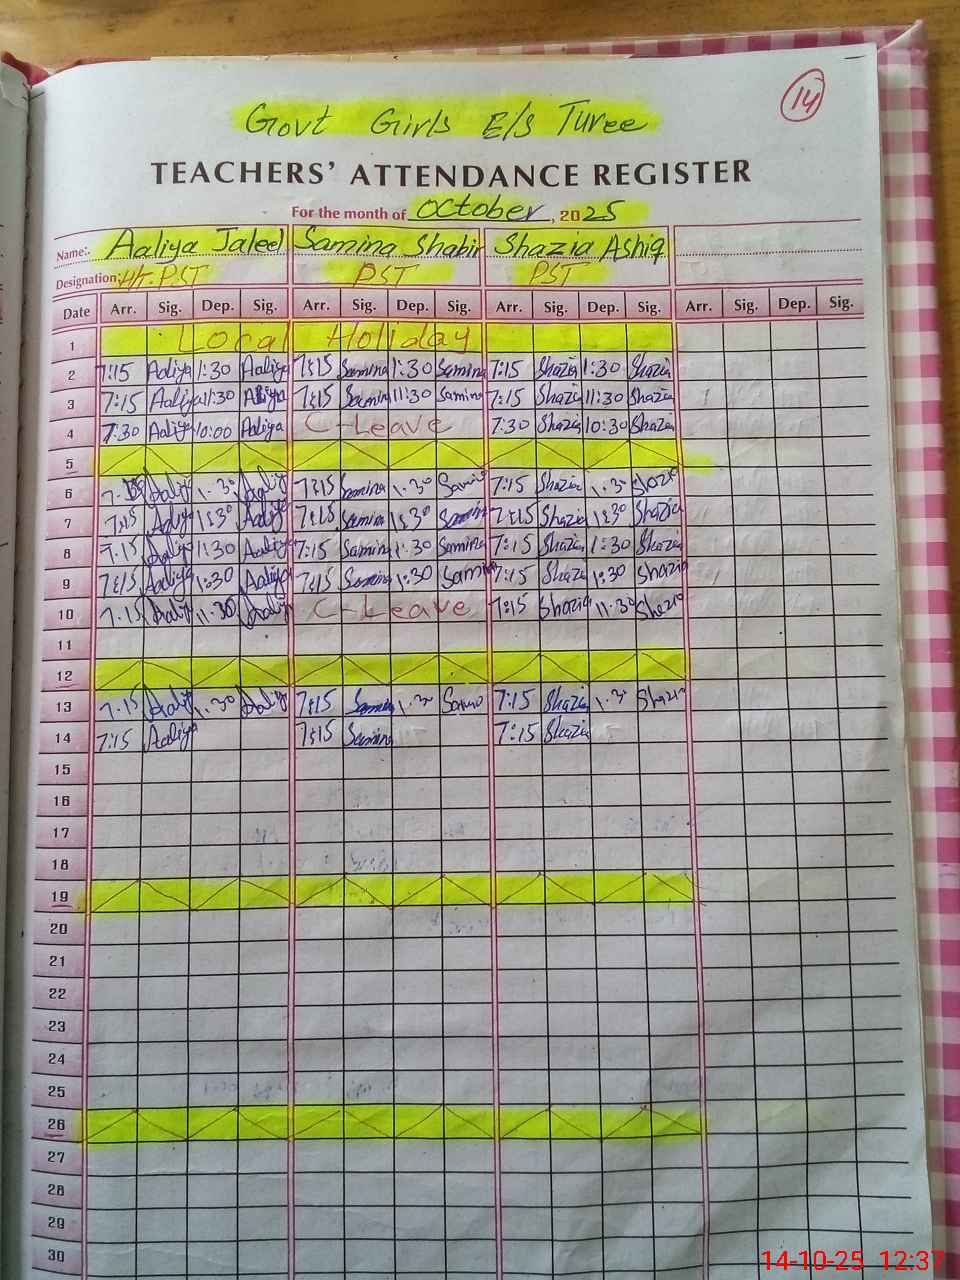 14
Govt Girls E/S Turee
TEACHERS' ATTENDANCE REGISTER
For the month of October, 2025
Name:. Aaliya Jaleel Samina Shabir Shazia Ashiq
Designation: H/T. PST PST PST
Date Arr. Sig. Dep. Sig. Arr. Sig. Dep. Sig. Arr. Sig. Dep. Sig. Arr. Sig. Dep. Sig.
1 Local Holiday
2 7:15 Aaliya 1:30 Aaliya 7:15 Samina 1:30 Samina 7:15 Shazia 1:30 Shazia
3 7:15 Aaliya 11:30 Aaliya 7:15 Samina 11:30 Samina 7:15 Shazia 11:30 Shazia
4 7:30 Aaliya 10:00 Aaliya C-Leave 7:30 Shazia 10:30 Shazia
5
6 Aaliya 1.30 Aaliya 7:15 Samina 1.30 Samina 7:15 Shazia 1.30 Shazia
7 7:15 Aaliya 1:30 Aaliya 7:15 Samina 1:30 Samina 7:15 Shazia 1:30 Shazia
8 7.15 Aaliya 1:30 Aaliya 7:15 Samina 1:30 Samina 7:15 Shazia 1:30 Shazia
9 7:15 Aaliya 1:30 Aaliya 7:15 Samina 1:30 Samina 7:15 Shazia 1:30 Shazia
10 7.15 Aaliya 11.30 Aaliya C-Leave 7:15 Shazia 11.30 Shazia
11
12
13 7.15 Aaliya 1.30 Aaliya 7:15 Samina 1.30 Samina 7:15 Shazia 1.30 Shazia
14 7:15 Aaliya 7:15 Samina 7:15 Shazia
15
16
17
18
19
20
21
22
23
24
25
26
27
28
29
30
14-10-25 12:37